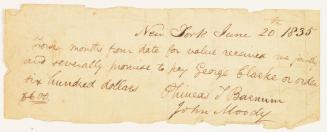 New York June 20th 1835
Four months from date for value received we jointly
and severally promise to pay George Clarke or order
six hundred dollars
Phineas T Barnum
$600.
John Moody